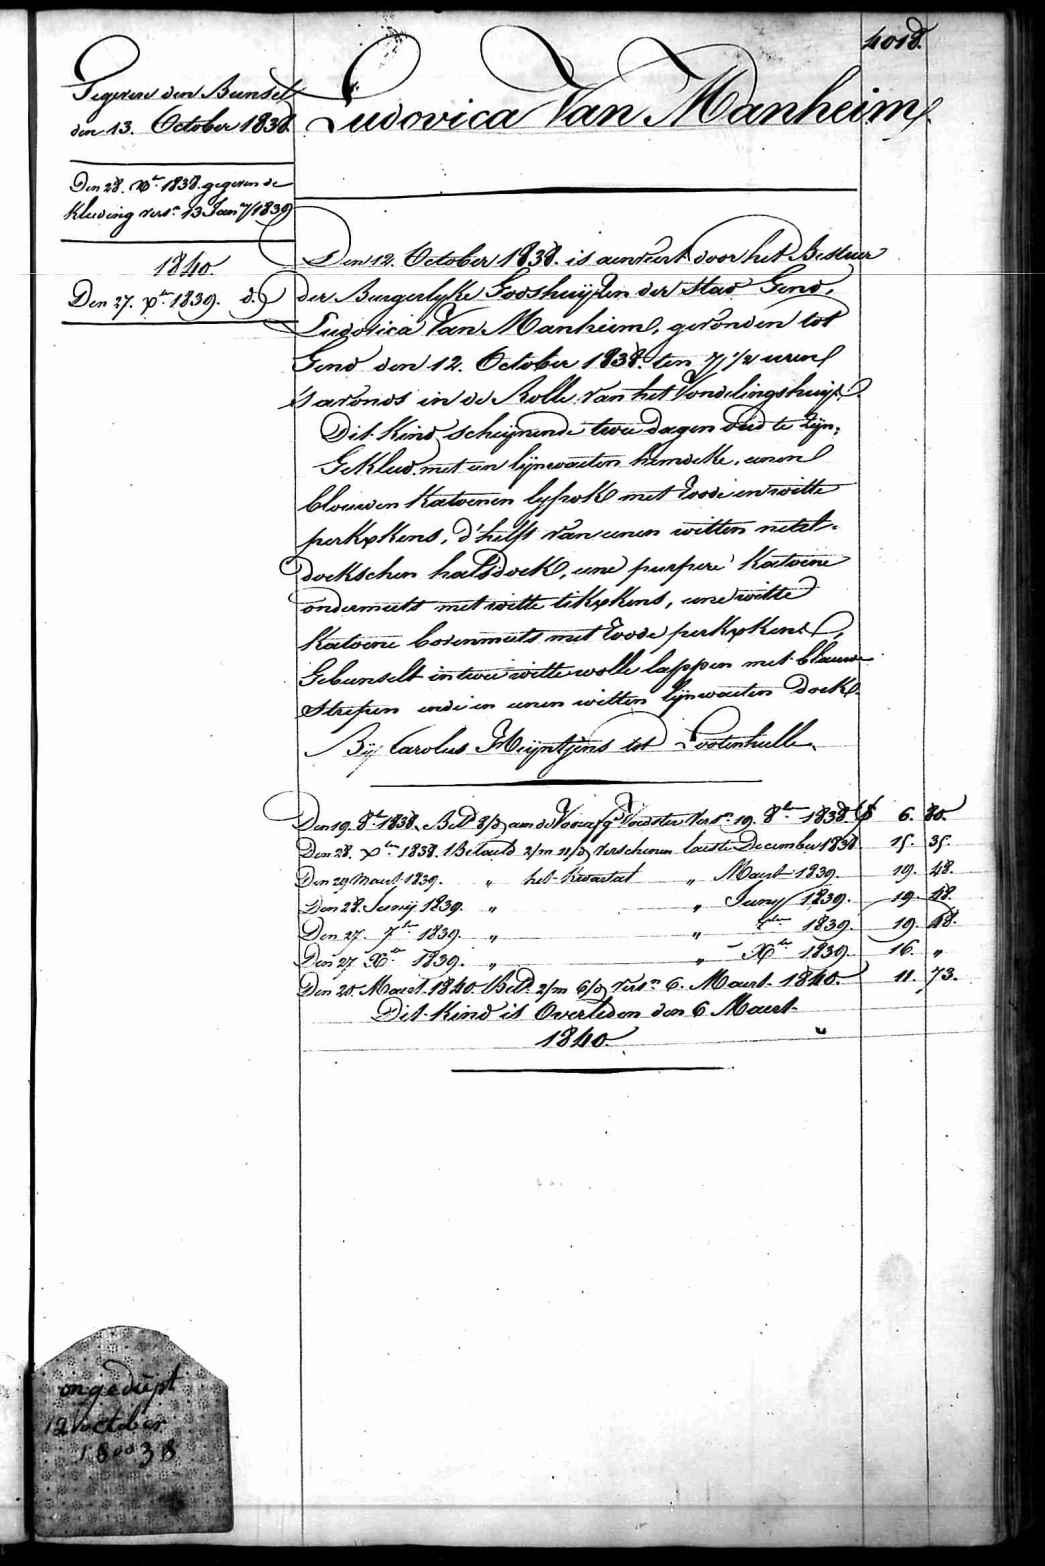 Gegeven den Bundel
den 13. October 1838
Den 28. Xbr 1838. gegeven de
Kleeding versn 13 Jany 1839
1840.
Den 27. Xbr 1839. d.
Ludovica Van Manheim.
Den 12. October 1838. is aenveert door het Bestuer
der Burgerlyke Godshuyzen der Stad Gend,
Ludovica Van Manheim, gevonden tot
Gend den 12. October 1838. ten 7 1/2 uren
s'avonds in de Rolle van het Vondelingshuys.
Dit Kind scheynende twee dagen oud te zyn,
Gekleed met een lynwaeten hemdeke, eenen
blauwen Katoenen lyfrok met roode en witte
perkxkens, d'helft van eenen witten netel-
doekschen halsdoek, eene purpere Katoene
ondermuts met witte tikxkens, eene witte
Katoene bovenmuts met roode perkxkens,
Gebunselt in twee witte wolle lappen met blauwe
Strepen ende in eenen witten lynwaeten doek.
By Carolus Meyntjens tot Lootenhulle.
Den 19. 8br 1838. Betd 8/d aen de Voedster versn 19. 8br 1838. 6. 80.
Den 28. Xbr 1838. Betaeld 2/m 11/d verschenen laeste December 1838 15. 35.
Den 29 Maert 1839. " het kwartael " Maert 1839. 19. 48.
Den 28. Juny 1839. " " Juny 1839. 19. 48.
Den 27. 7br 1839. " " 7br 1839. 19. 48.
Den 27 Xbr 1839. " " Xbr 1839. 16. "
Den 20. Maert 1840. Betd 2/m 6/d versn 6. Maert 1840. 11. 73.
Dit Kind is Overleden den 6 Maert
1840.
ongedupt
12 october
1838
4018.